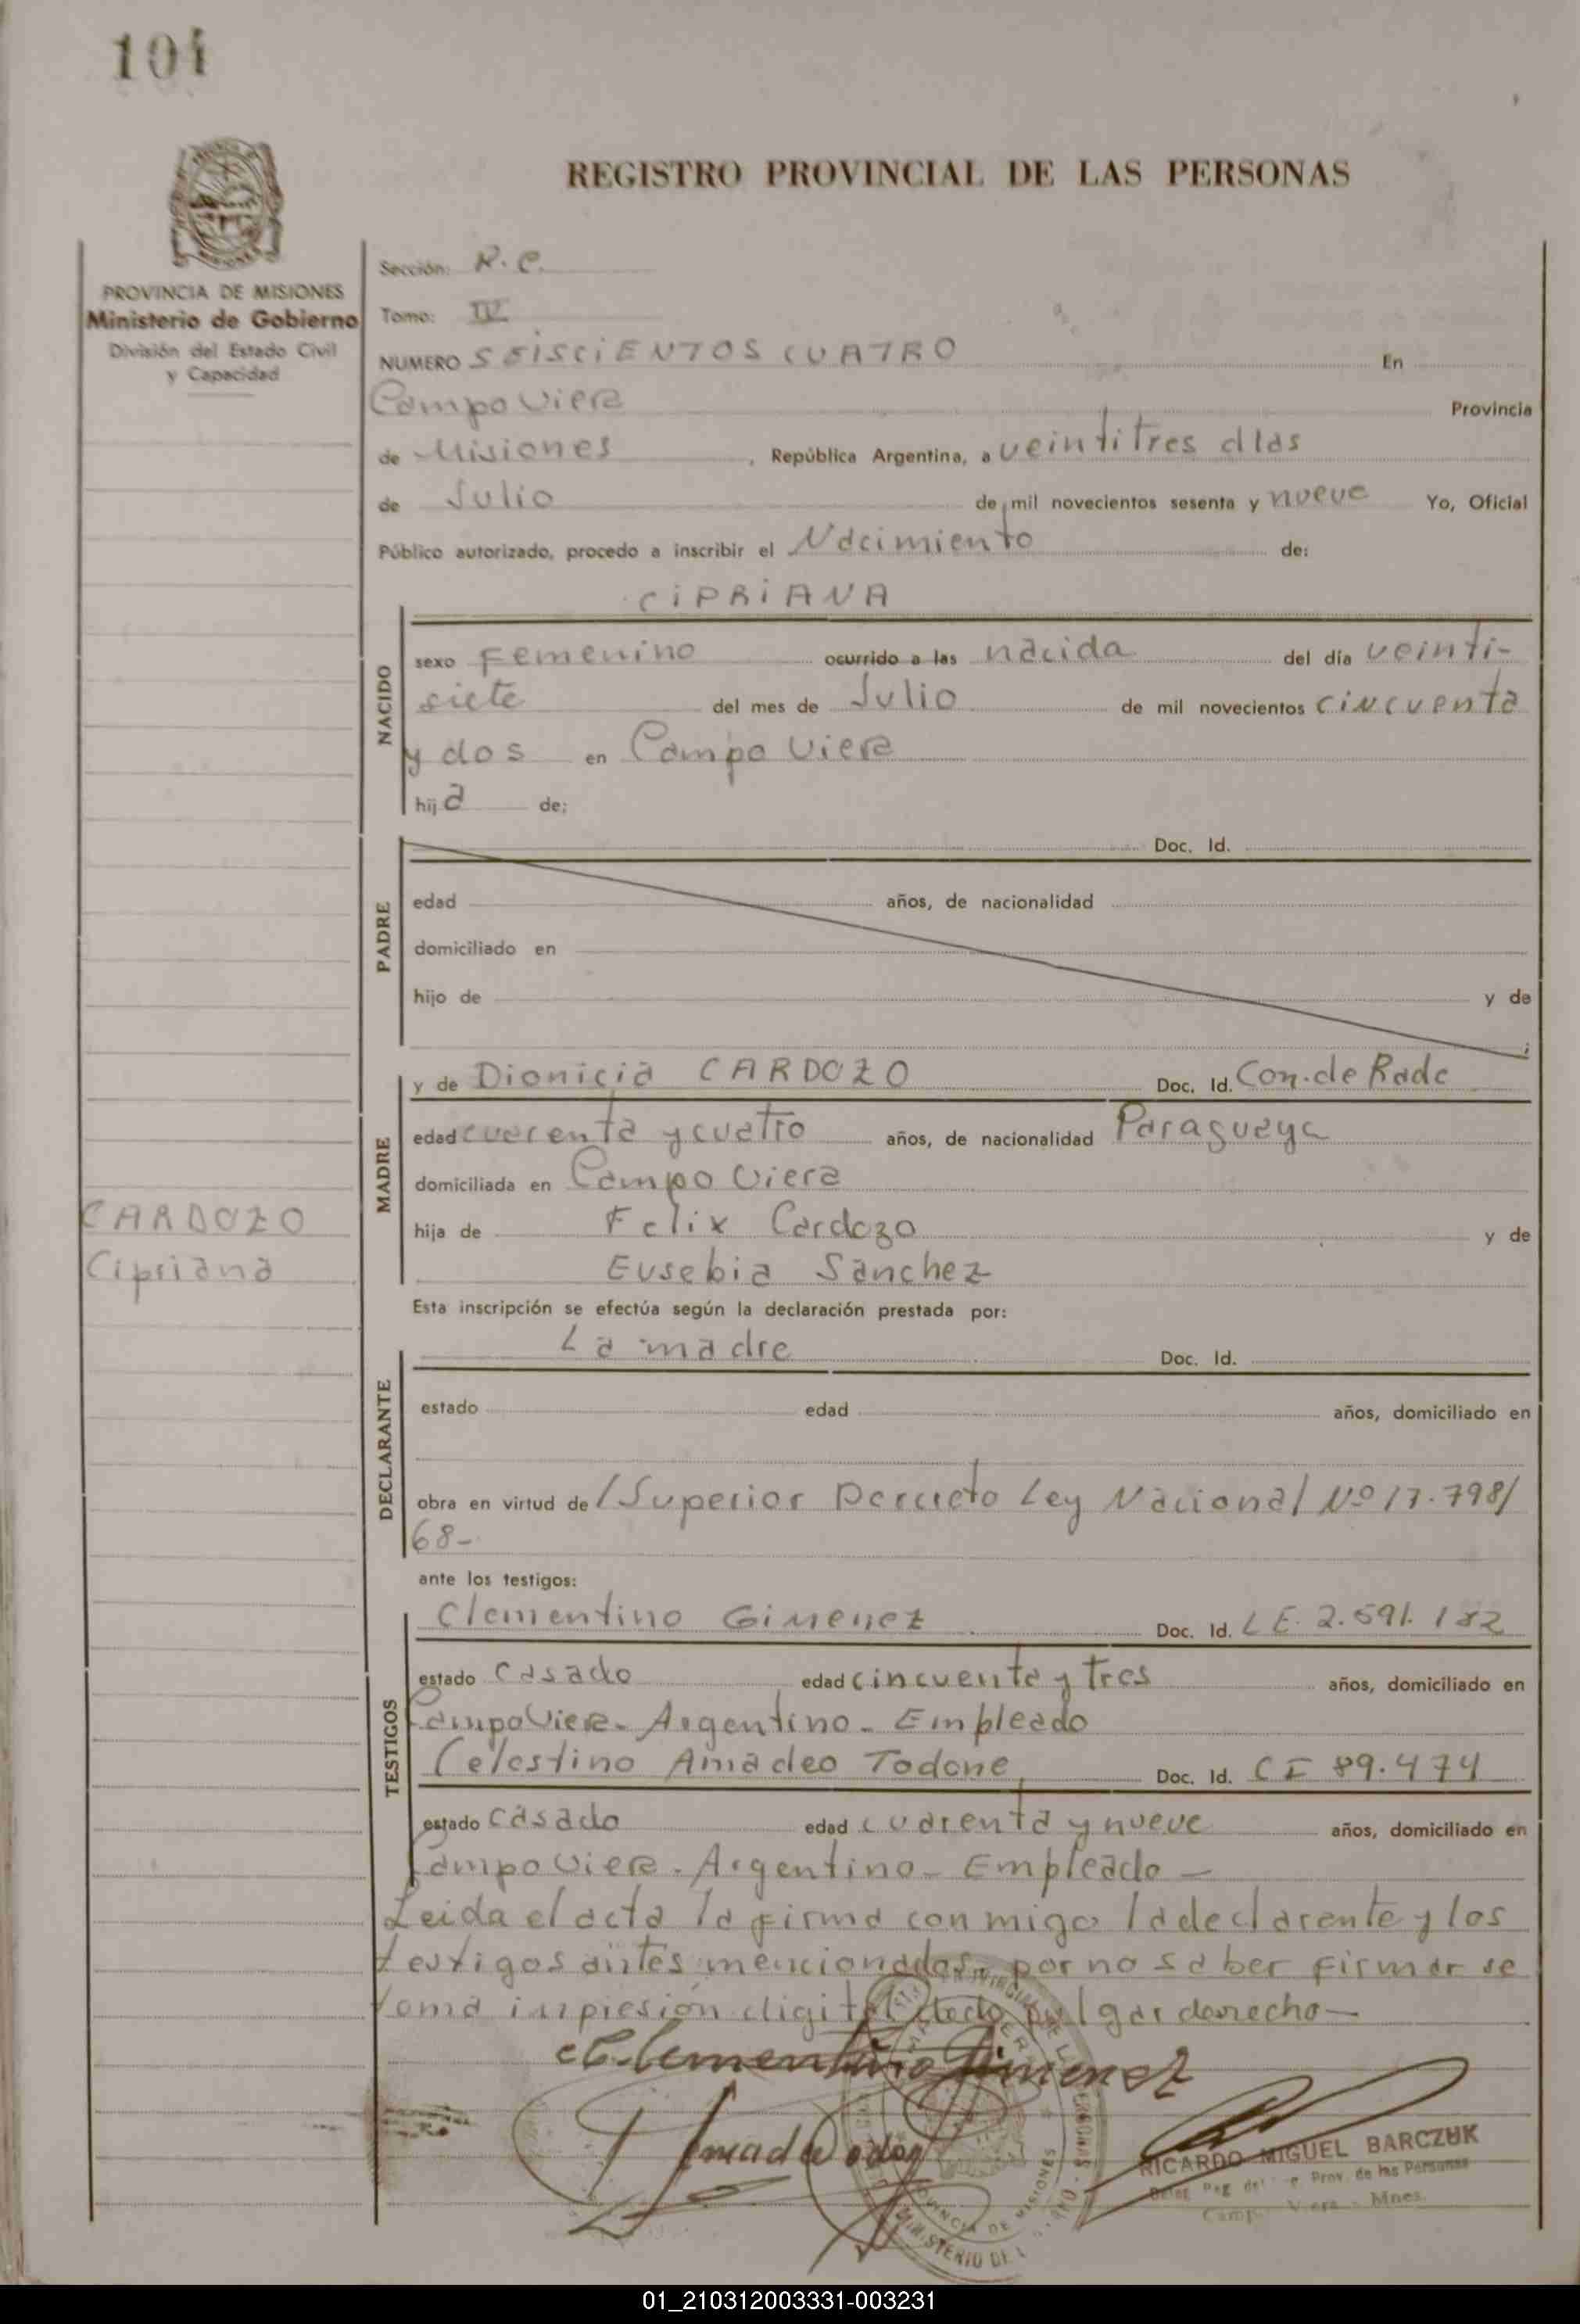 104
REGISTRO PROVINCIAL DE LAS PERSONAS
PROVINCIA DE MISIONES
Ministerio de Gobierno
División del Estado Civil
y Capacidad
Sección: R.C.
Tomo: IV
NUMERO SEISCIENTOS CUATRO En
Campo Viera Provincia
de Misiones, República Argentina, a veintitres dias
de Julio de mil novecientos sesenta y nueve Yo, Oficial
Público autorizado, procedo a inscribir el Nacimiento de:
CIPRIANA
NACIDO
sexo Femenino ocurrido a las nacida del día veinti-
siete del mes de Julio de mil novecientos cincuenta
y dos en Campo Viera
hija de:
PADRE
Doc. Id.
edad años, de nacionalidad
domiciliado en
hijo de y de
MADRE
y de Dionicia CARDOZO Doc. Id. Con. de Radc
edad cuarenta y cuatro años, de nacionalidad Paraguaya
domiciliada en Campo Viera
hija de Felix Cardozo y de
Eusebia Sanchez
CARDOZO
Cipriana
Esta inscripción se efectúa según la declaración prestada por:
DECLARANTE
La madre Doc. Id.
estado edad años, domiciliado en
obra en virtud de /Superior Ley Nacional Nº 17.798/
68-
ante los testigos:
TESTIGOS
Clementino Gimenez Doc. Id. LE. 2.591.182
estado casado edad cincuenta y tres años, domiciliado en
Campo Viera- Argentino- Empleado
Celestino Amadeo Todone Doc. Id. CI 89.474
estado casado edad cuarenta y nueve años, domiciliado en
Campo Viera- Argentino- Empleado-
Leida el acta la firma con migo la declarante y los
testigos antes mencionados, por no saber firmar se
toma impresión digital dedo pulgar derecho-
Clementino Jimenez
RICARDO MIGUEL BARCZUK
Prov. de las Personas
Viera - Mnes.
PROVINCIA DE MISIONES
MINISTERIO DE
01_210312003331-003231